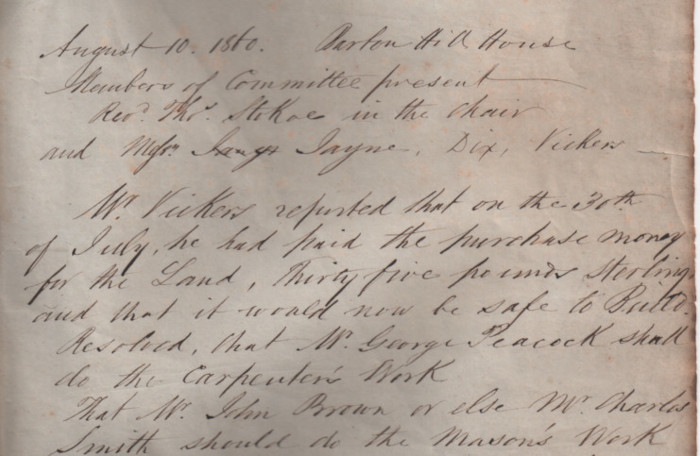 August 10. 1860. Barton Hill House
Members of Committee present
Revd. Thos. Stokoe in the chair
and Messrs Jayne, Dix, Vickers
Mr. Vickers reported that on the 30th
of July, he had paid the purchase money
for the Land, Thirty five pounds Sterling
and that it would now be safe to Build.
Resolved, that Mr. George Peacock shall
do the Carpenter's Work
That Mr. John Brown or else Mr. Charles
Smith should do the Mason's Work